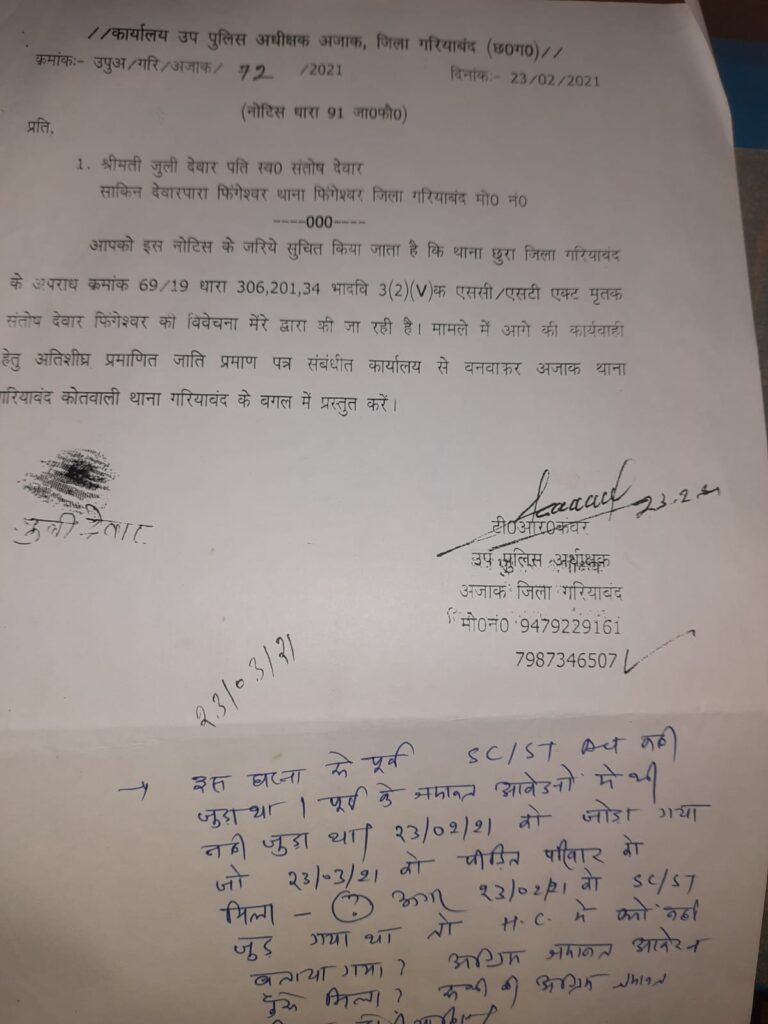 //कार्यालय उप पुलिस अधीक्षक अजाक, जिला गरियाबंद (छ0ग0)//
क्रमांकः- उपुअ/गरि/अजाक/ 72 /2021 दिनांकः- 23/02/2021
(नोटिस धारा 91 जा0फौ0)
प्रति,
1. श्रीमती जुली देवार पति स्व0 संतोष देवार
साकिन देवारपारा फिंगेश्वर थाना फिंगेश्वर जिला गरियाबंद मो0 नं0
----000----
आपको इस नोटिस के जरिये सुचित किया जाता है कि थाना छुरा जिला गरियाबंद
के अपराध क्रमांक 69/19 धारा 306,201,34 भादवि 3(2)(V)क एससी/एसटी एक्ट मृतक
संतोष देवार फिंगेश्वर की विवेचना मेंरे द्वारा की जा रही है। मामले में आगे की कार्यवाही
हेतु अतिशीघ्र प्रमाणित जाति प्रमाण पत्र संबंधीत कार्यालय से बनवाकर अजाक थाना
गरियाबंद कोतवाली थाना गरियाबंद के बगल में प्रस्तुत करें।
जुली देवार
23.2.21
टी0आर0कंवर
उप पुलिस अधीक्षक
अजाक जिला गरियाबंद
मो0नं0 9479229161
7987346507
23/03/21
→ इस घटना के पूर्व SC/ST Act नही
जुड़ा था। पूर्व के जमानत आवेदनों में भी
नही जुड़ा था। 23/02/21 को जोड़ा गया
जो 23/03/21 को पीड़ित परिवार को
मिला - ? अगर 23/02/21 को SC/ST
जुड़ गया था तो H.C. में क्यों नही
बताया गया? अग्रिम जमानत आवेदन
कैसे मिला? सभी की अग्रिम जमानत